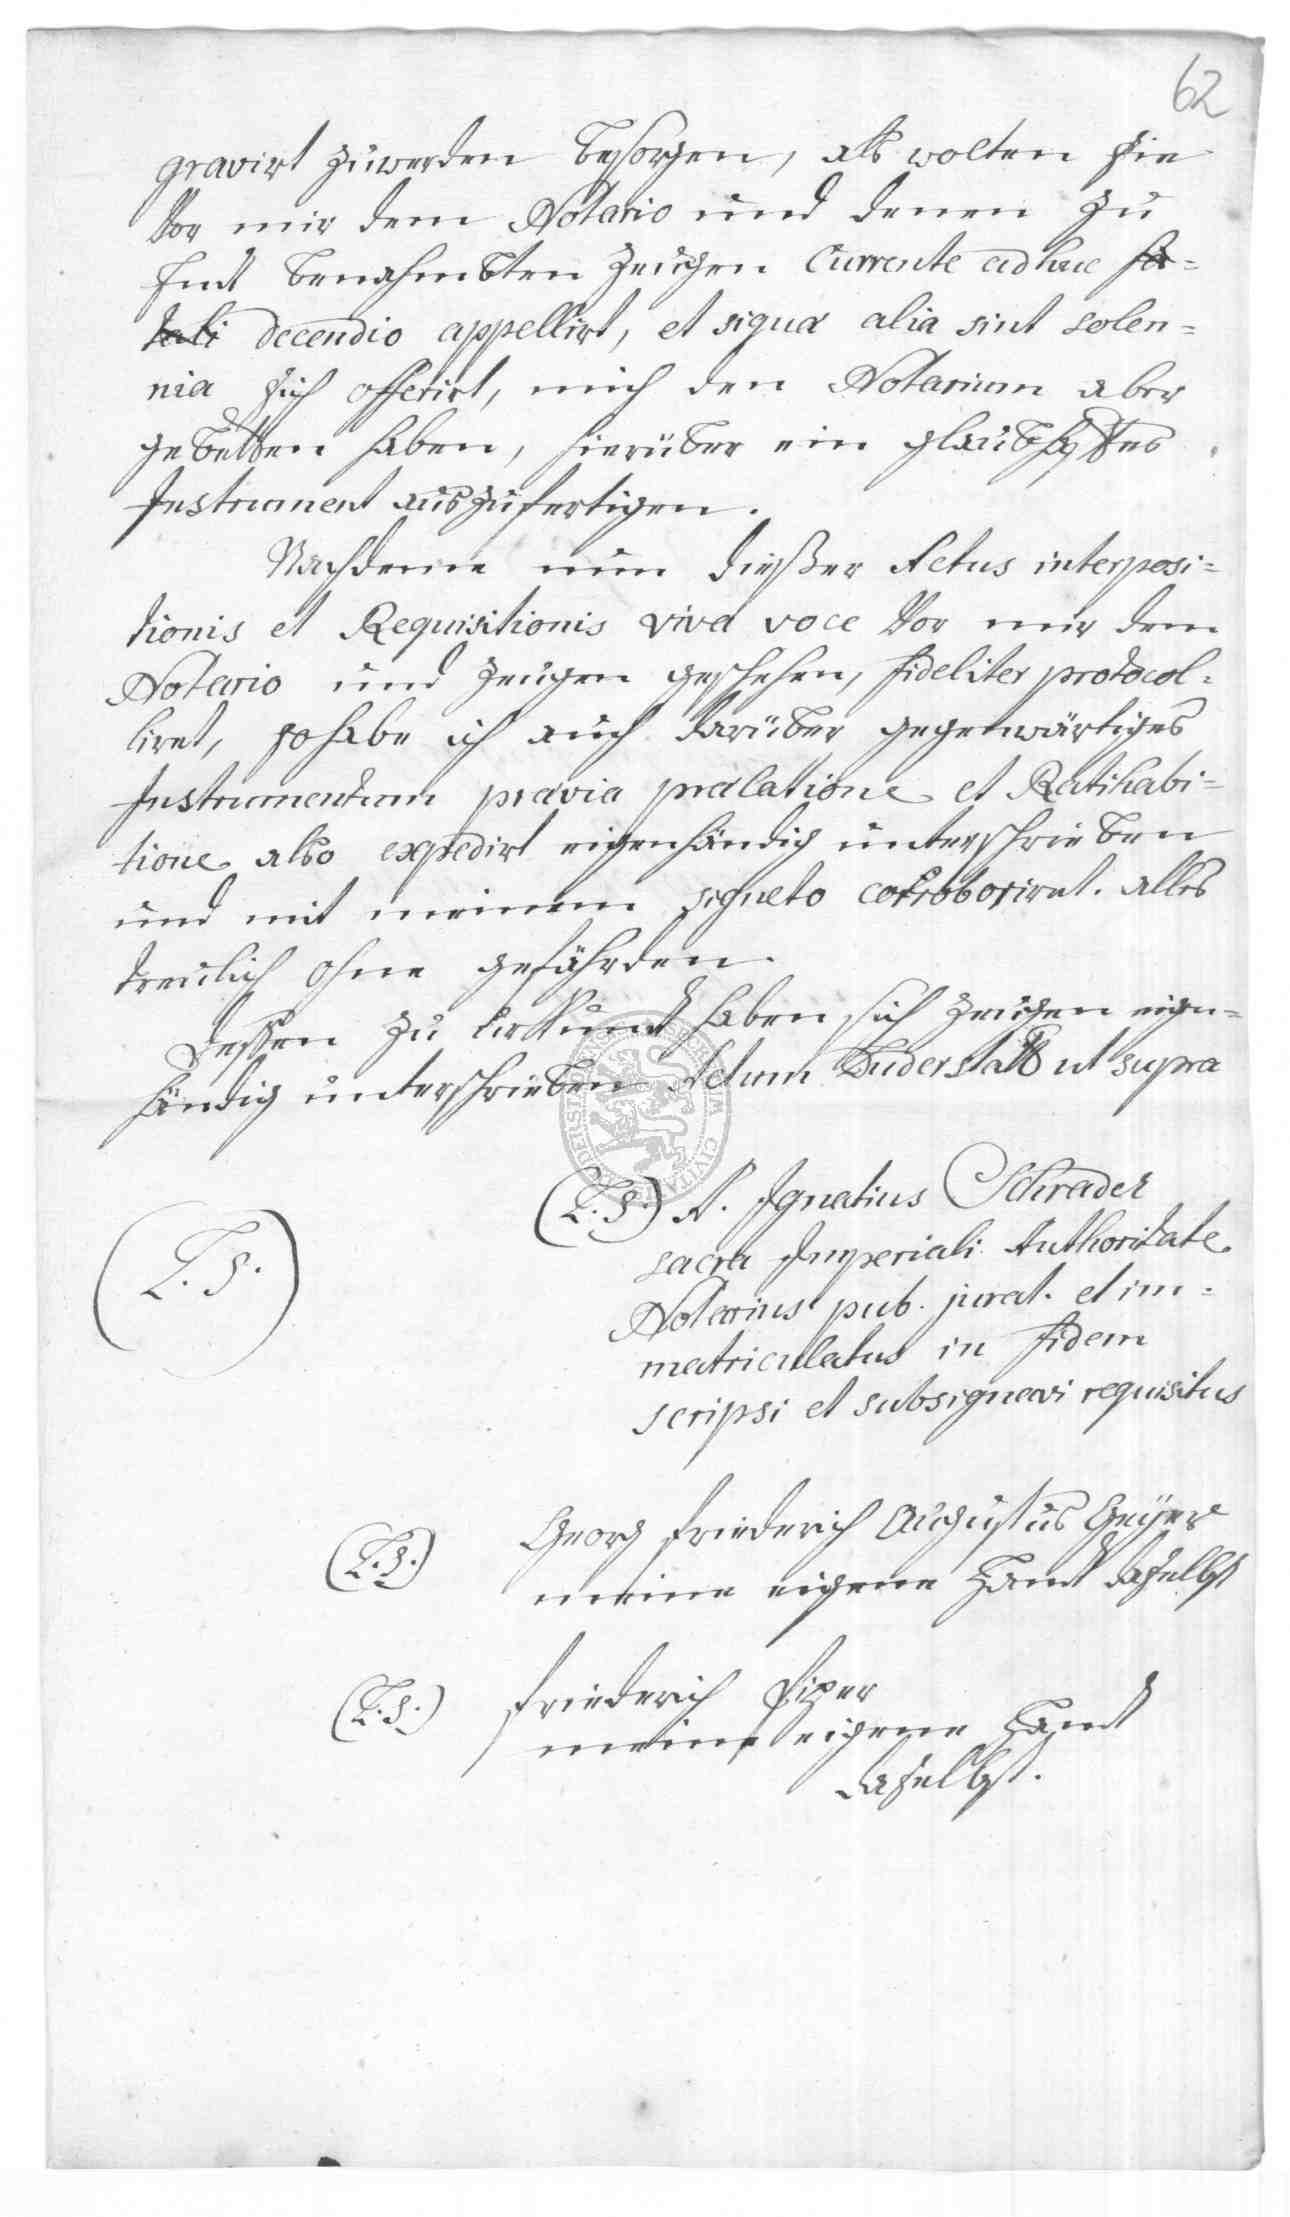 62
gravirt zuwerden besorgen, als wolten sie
Vor mir dem Notario und denen zu
Endt benahmbten Zeugen Currente adhuc fa=
tali decendio appellirt, et siqua alia sint solen=
nia sich offerirt, mich den Notarium aber
gebetten haben, hierüber ein glaubhafftes
Instrument auszufertigen.
Nachdeme nun dießer Actus interposi=
tionis et Requisitionis viva voce Vor mir dem
Notario und Zeugen geschehen, fideliter protocol=
liret, so habe ich auch darüber gegenwärtiges
Instrumentum praevia praelatione et Ratihabi=
tione also expedirt eigenhändig unterschrieben
und mit meinem signeto corroboriret. alles
treulich ohne gefährden.
Dessen zu Urkundt haben sich Zeugen eigen=
händig unterschrieben Actum Duderstatt ut supra
(L.S.) A. Ignatius Schrader
sacra Imperiali Authoritate
Notarius pub. jurat. et im=
matriculatus in fidem
scripsi et subsignavi requisitus
(L.S.)
(L.S.) Georg Friederich Augustus Geyer
meine eigene Handt daselbst
(L.S.) Friederich Piper
meine eigene Handt
daselbst.